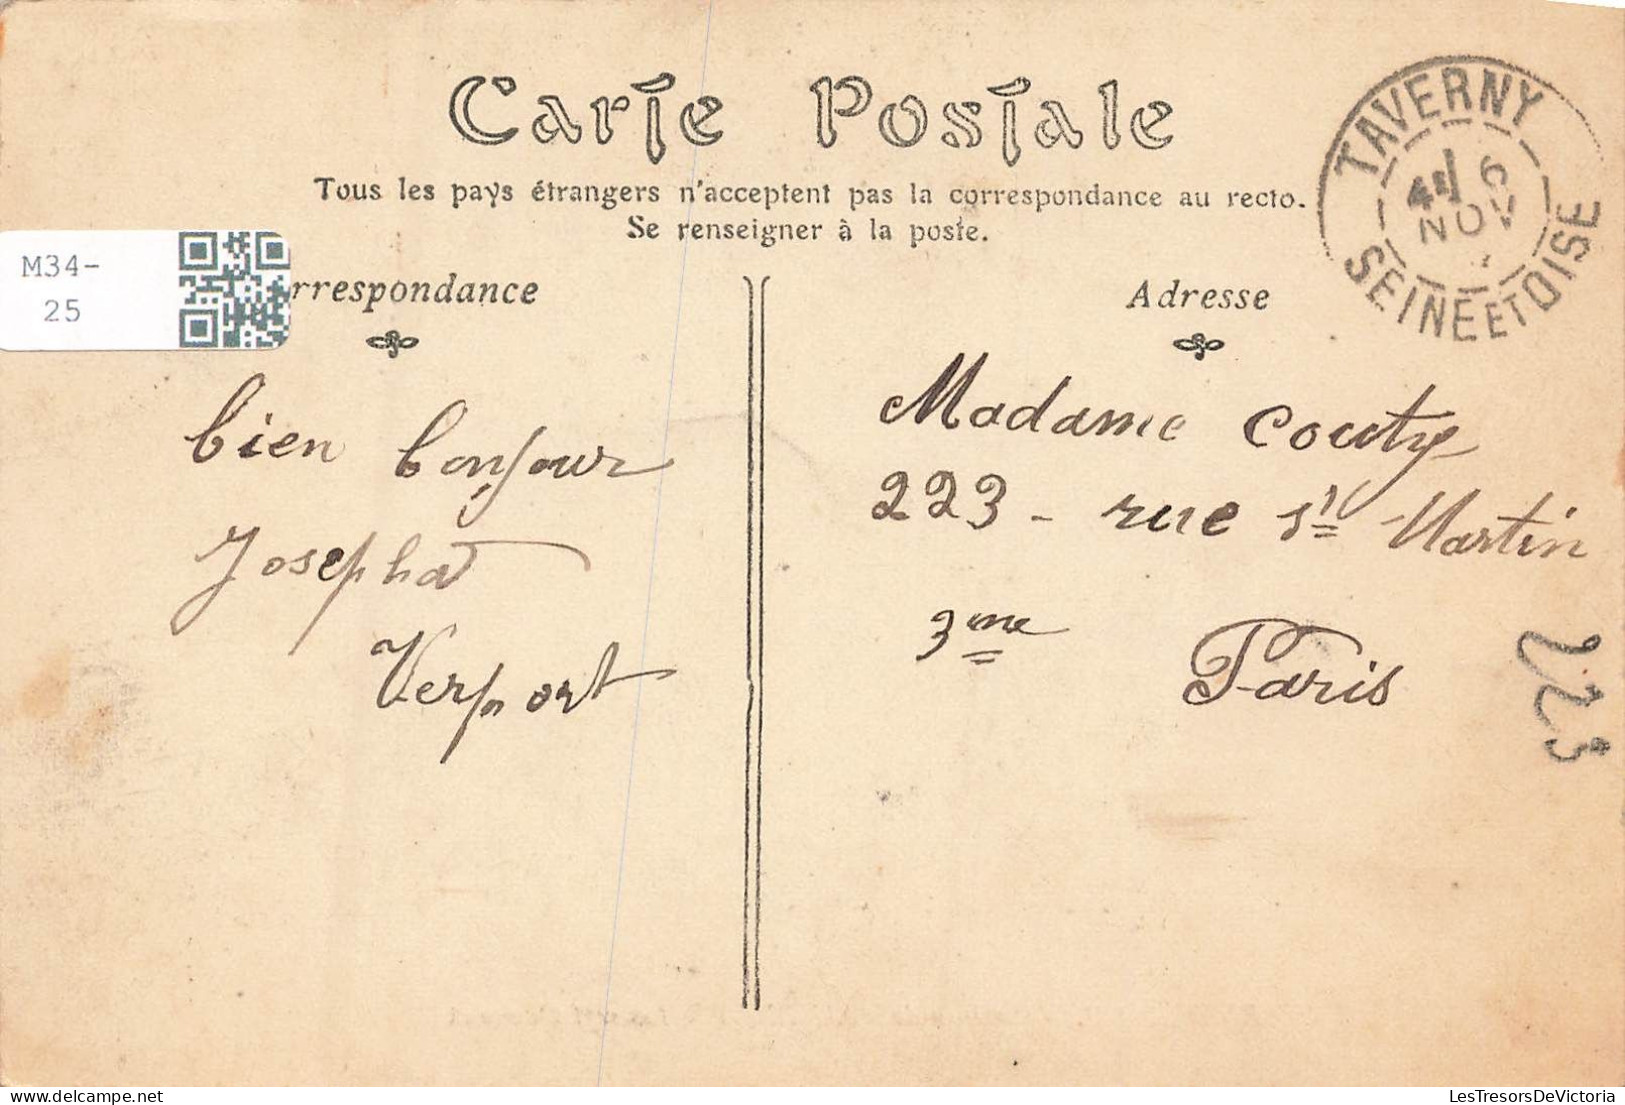 Carte Postale
Tous les pays étrangers n'acceptent pas la correspondance au recto.
Se renseigner à la poste.
M34-
25
rrespondance
Adresse
TAVERNY
6
NOV
SEINE ET OISE
bien bonjour
Josepha
Verport
Madame Couty
223 - rue St Martin
3me Paris
223
LesTresorsDeVictoria.com